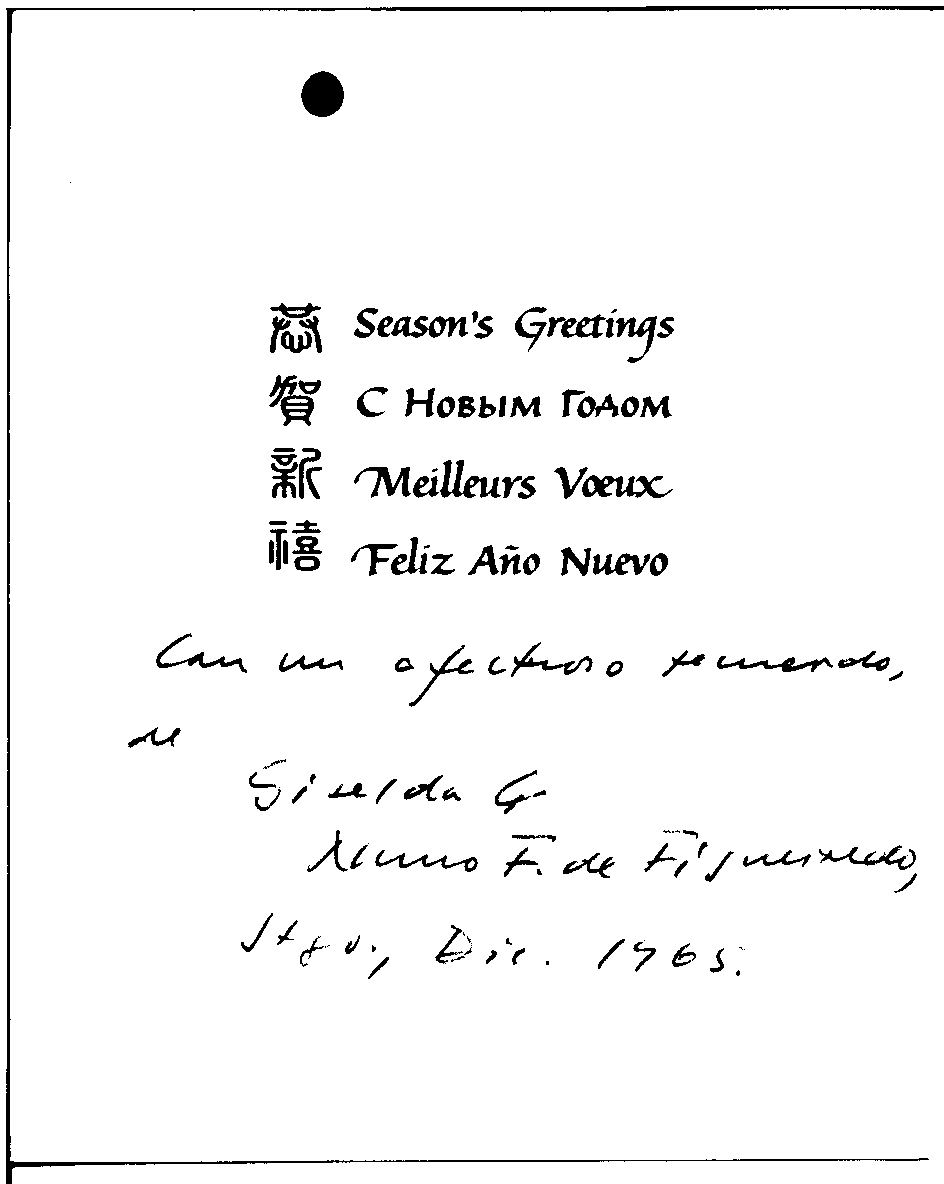 恭 Season's Greetings
賀 С Новым Годом
新 Meilleurs Vœux
禧 Feliz Año Nuevo
Con un afectuoso recuerdo,
de
Giselda G
Nuno F. de Figueiredo,
Stgo., Dic. 1965.